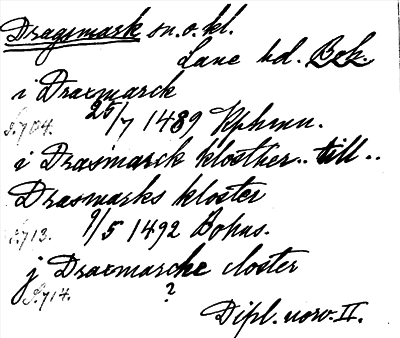 Dragsmark sn. o. kl.
Lane hd. Boh.
i Draxmarck
S. 704. 25/7 1489 Kphmn.
i Drasmarck kloster.. till..
Drasmarks kloster
S. 713. 9/5 1492 Bohus.
j Draxmarche closter
S. 714. ?
Dipl. norv. II.